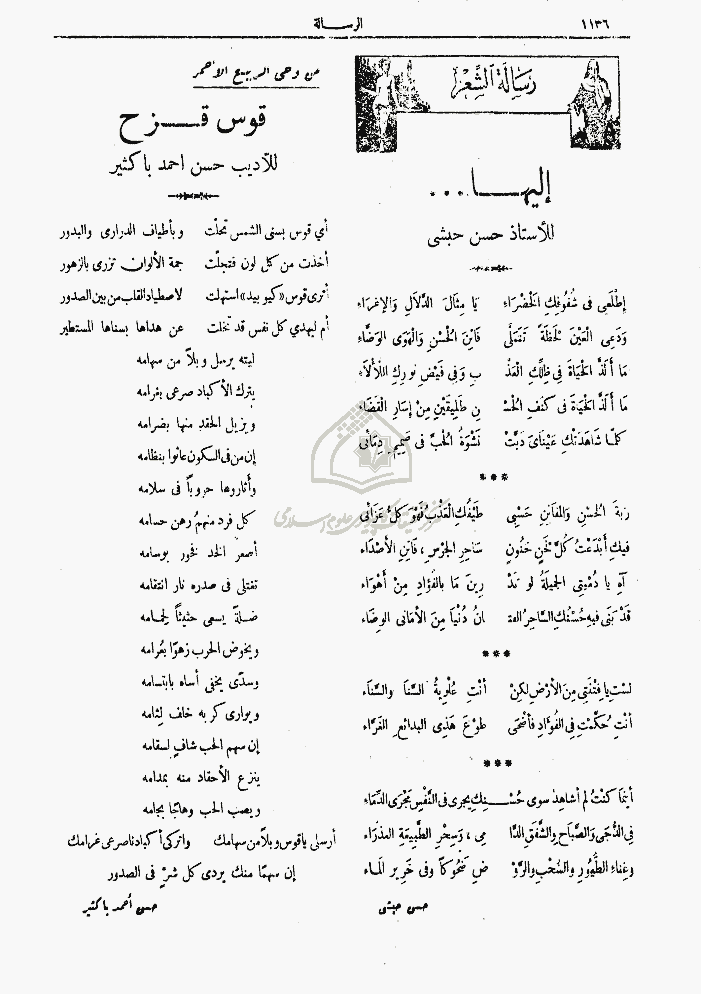 ١١٣٦
الرسالة
رسالة الشعر
إليها...
للأستاذ حسن حبشى
إِطْلَعِى فى شُفُوفِكِ الْخَضْرَاءِ يَا مِثَالَ الدَّلَالِ وَالإغراءِ
وَدَعِى الْعَيْنَ لَحْظَةً تَتَمَلَّى فَاتِنَ الْحُسْنِ وَالْهَوَى الوَضَّاءِ
مَا أَلَذَّ الْحَيَاةَ فى ظِلِّكِ الْعَذْ بِ وَفى فَيْضِ نورِكِ اللَّأْلَاءِ
مَا أَلَذَّ الْحَيَاةَ فى كَنَفِ الْحُسْ نِ طَلِيقَيْنِ مِنْ إِسَارِ الْفَضَاءِ
كلَّما شَاهَدَتْكِ عَيْنَاىَ دَبَّتْ نَشْوَةُ الْحُبِّ فى صَمِيمِ دِمَائى
***
رَبَةَ الْحُسْنِ وَالمفَاتِنِ حَسْبِى طَيْفُكِ الْعَذْبُ فَهْوَ كلُّ عَزَائى
فيكِ أَبْدَعْتُ كُلَّ لَحْنٍ حَنُونٍ سَاحِرِ الْجَرْسِ، فَاتِنِ الأَصْدَاءِ
آهِ يا دُمْيَتِى الجميلَةُ لو تَدْ رِينَ مَا بِالفُؤَادِ مِنْ أَهْوَاءِ
قَدْ بَنَى فيهِ حُسْنُكِ السَّاحِرُ الفت انُ دُنْيَا مِنَ الأَمَانى الوِضَاءِ
***
لستِ يا فِتْنَتِى مِنَ الأَرْضِ لكِنْ أَنْتِ عُلْوِيةُ السَّنَا والسَّنَاءِ
أَنْتِ حُكِّمْتِ فى الفُؤَادِ فأضْحَى طَوْعَ هَذِى البدائعِ الغَرَّاءِ
***
أَيْنَمَا كنْتُ لم أشاهِدْ سوى حُسْنِكِ يجرى فى النَّفْسِ مَجْرَى الدِّمَاءِ
فى الدُّجَى وَالصَّبَاحِ وَالشَّفَقِ الدَّا مِى، وَسِحْرِ الطَّبِيعَةِ العذرَاءِ
وَغِنَاءِ الطُّيُورِ والسُّحْبِ والرَّوْ ضِ ضَحُوكاً وفى خَرِيرِ الْمَاءِ
حسن حبشى
من وحى الربيع الأحمر
قوس قزح
للأديب حسن احمد باكثير
أى قوس بسنى الشمس تحلت وبأطياف الدرارى والبدور
أخذت من كل لون فتجلت جمة الألوان تزرى بالزهور
أترى قوس «كيوبيد» استهلت لاصطياد القلب من بين الصدور
أم ليهدى كل نفس قد تخلت عن هداها بسناها المستطير
ليته يرسل وبلاً من سهامه
يترك الأكباد صرعى بغرامه
ويزيل الحقد منها بضرامه
إن من فى السكون عاثوا بنظامه
وأثاروها حروباً فى سلامه
كل فرد منهمُ رهن حسامه
أصعر الخد فخور بوسامه
تغتلى فى صدره نار انتقامه
ضلة يسعى حثيثاً لحمامه
ويخوض الحرب زهواً بعرامه
وسدًى يخفى أساه بابتسامه
ويوارى كربه خلف لثامه
إن سهم الحب شاف لسقامه
ينزع الأحقاد منه بمدامه
ويصب الحب وهاجا بجامه
أرسلى ياقوس وبلا من سهامك واتركى أكبادنا صرعى غرامك
إن سهمًا منك يردى كل شرٍّ فى الصدور
حسن أحمد باكثير